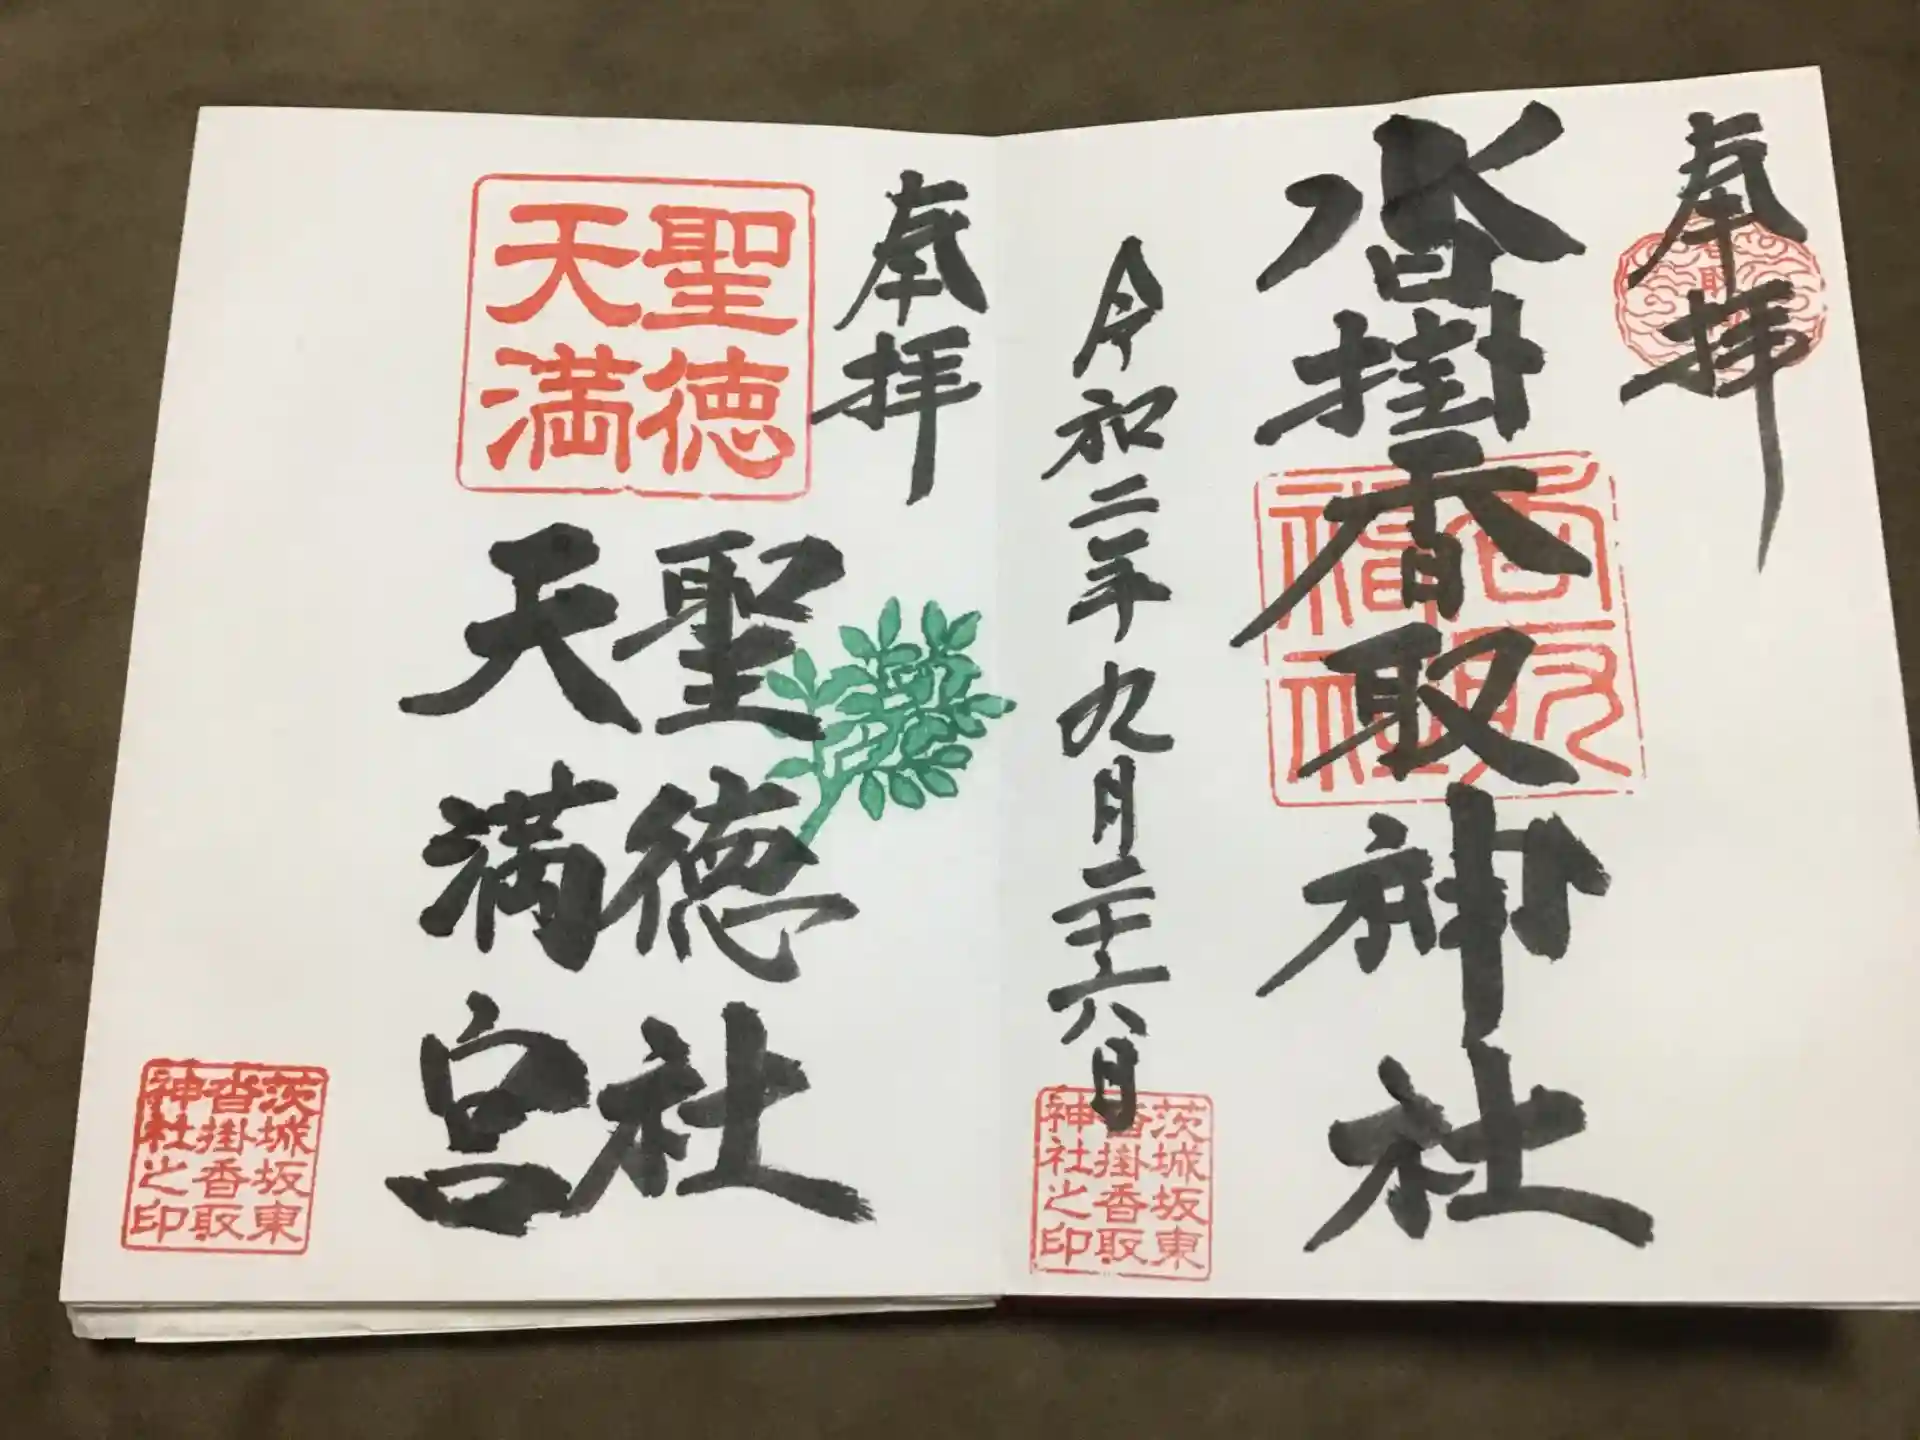 奉拝
沓掛香取神社
令和二年九月二十六日
茨城坂東
沓掛香取
神社之印
奉拝
聖徳
天満
聖徳社
天満宮
茨城坂東
沓掛香取
神社之印